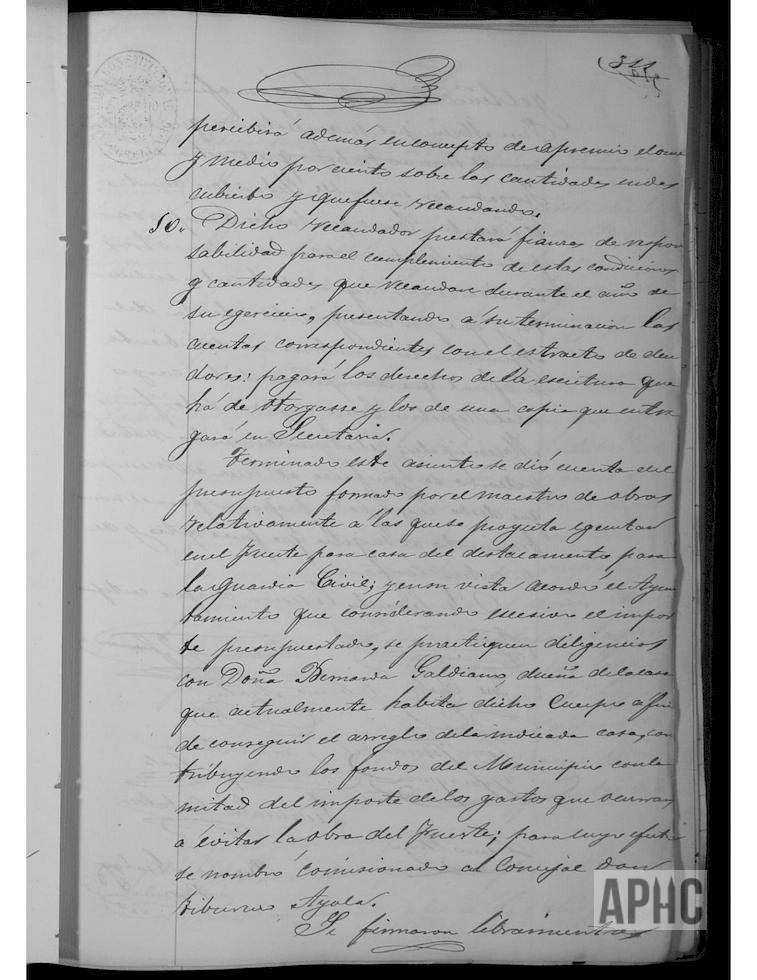 311
percibirá además en concepto de apremio el once
y medio por ciento sobre las cantidades en des
cubierto y que fuese recaudando.
10. Dicho recaudador prestará fianzas de respon
sabilidad para el cumplimiento de estas condiciones
y cantidades que recaudare durante el año de
su egercicio, presentando á su terminacion las
cuentas correspondientes con el estracto de deu
dores: pagará los derechos de la escritura que
há de otorgarse y los de una copia que entre
gará en Secretaria.
Terminado este asunto se dió cuenta del
presupuesto formado por el maestro de obras
relativamente á las que se proyecta egecutar
en el Fuerte para casa del destacamento para
la Guardia Civil; y en su vista acordó el Ayun
tamiento que considerando escesivo el impor
te presupuestado, se practiquen diligencias
con Doña Bernarda Galdiano, dueña de la casa
que actualmente habita dicho Cuerpo a fin
de conseguir el arreglo de la indicada casa, con
tribuyendo los fondos del Municipio con la
mitad del importe de los gastos que ocurran
a évitar la obra del Fuerte; para cuyo efecto
se nombró comisionado al Concejal Don
Tiburcio Ayala.
Se firmaron libramientos
APHC